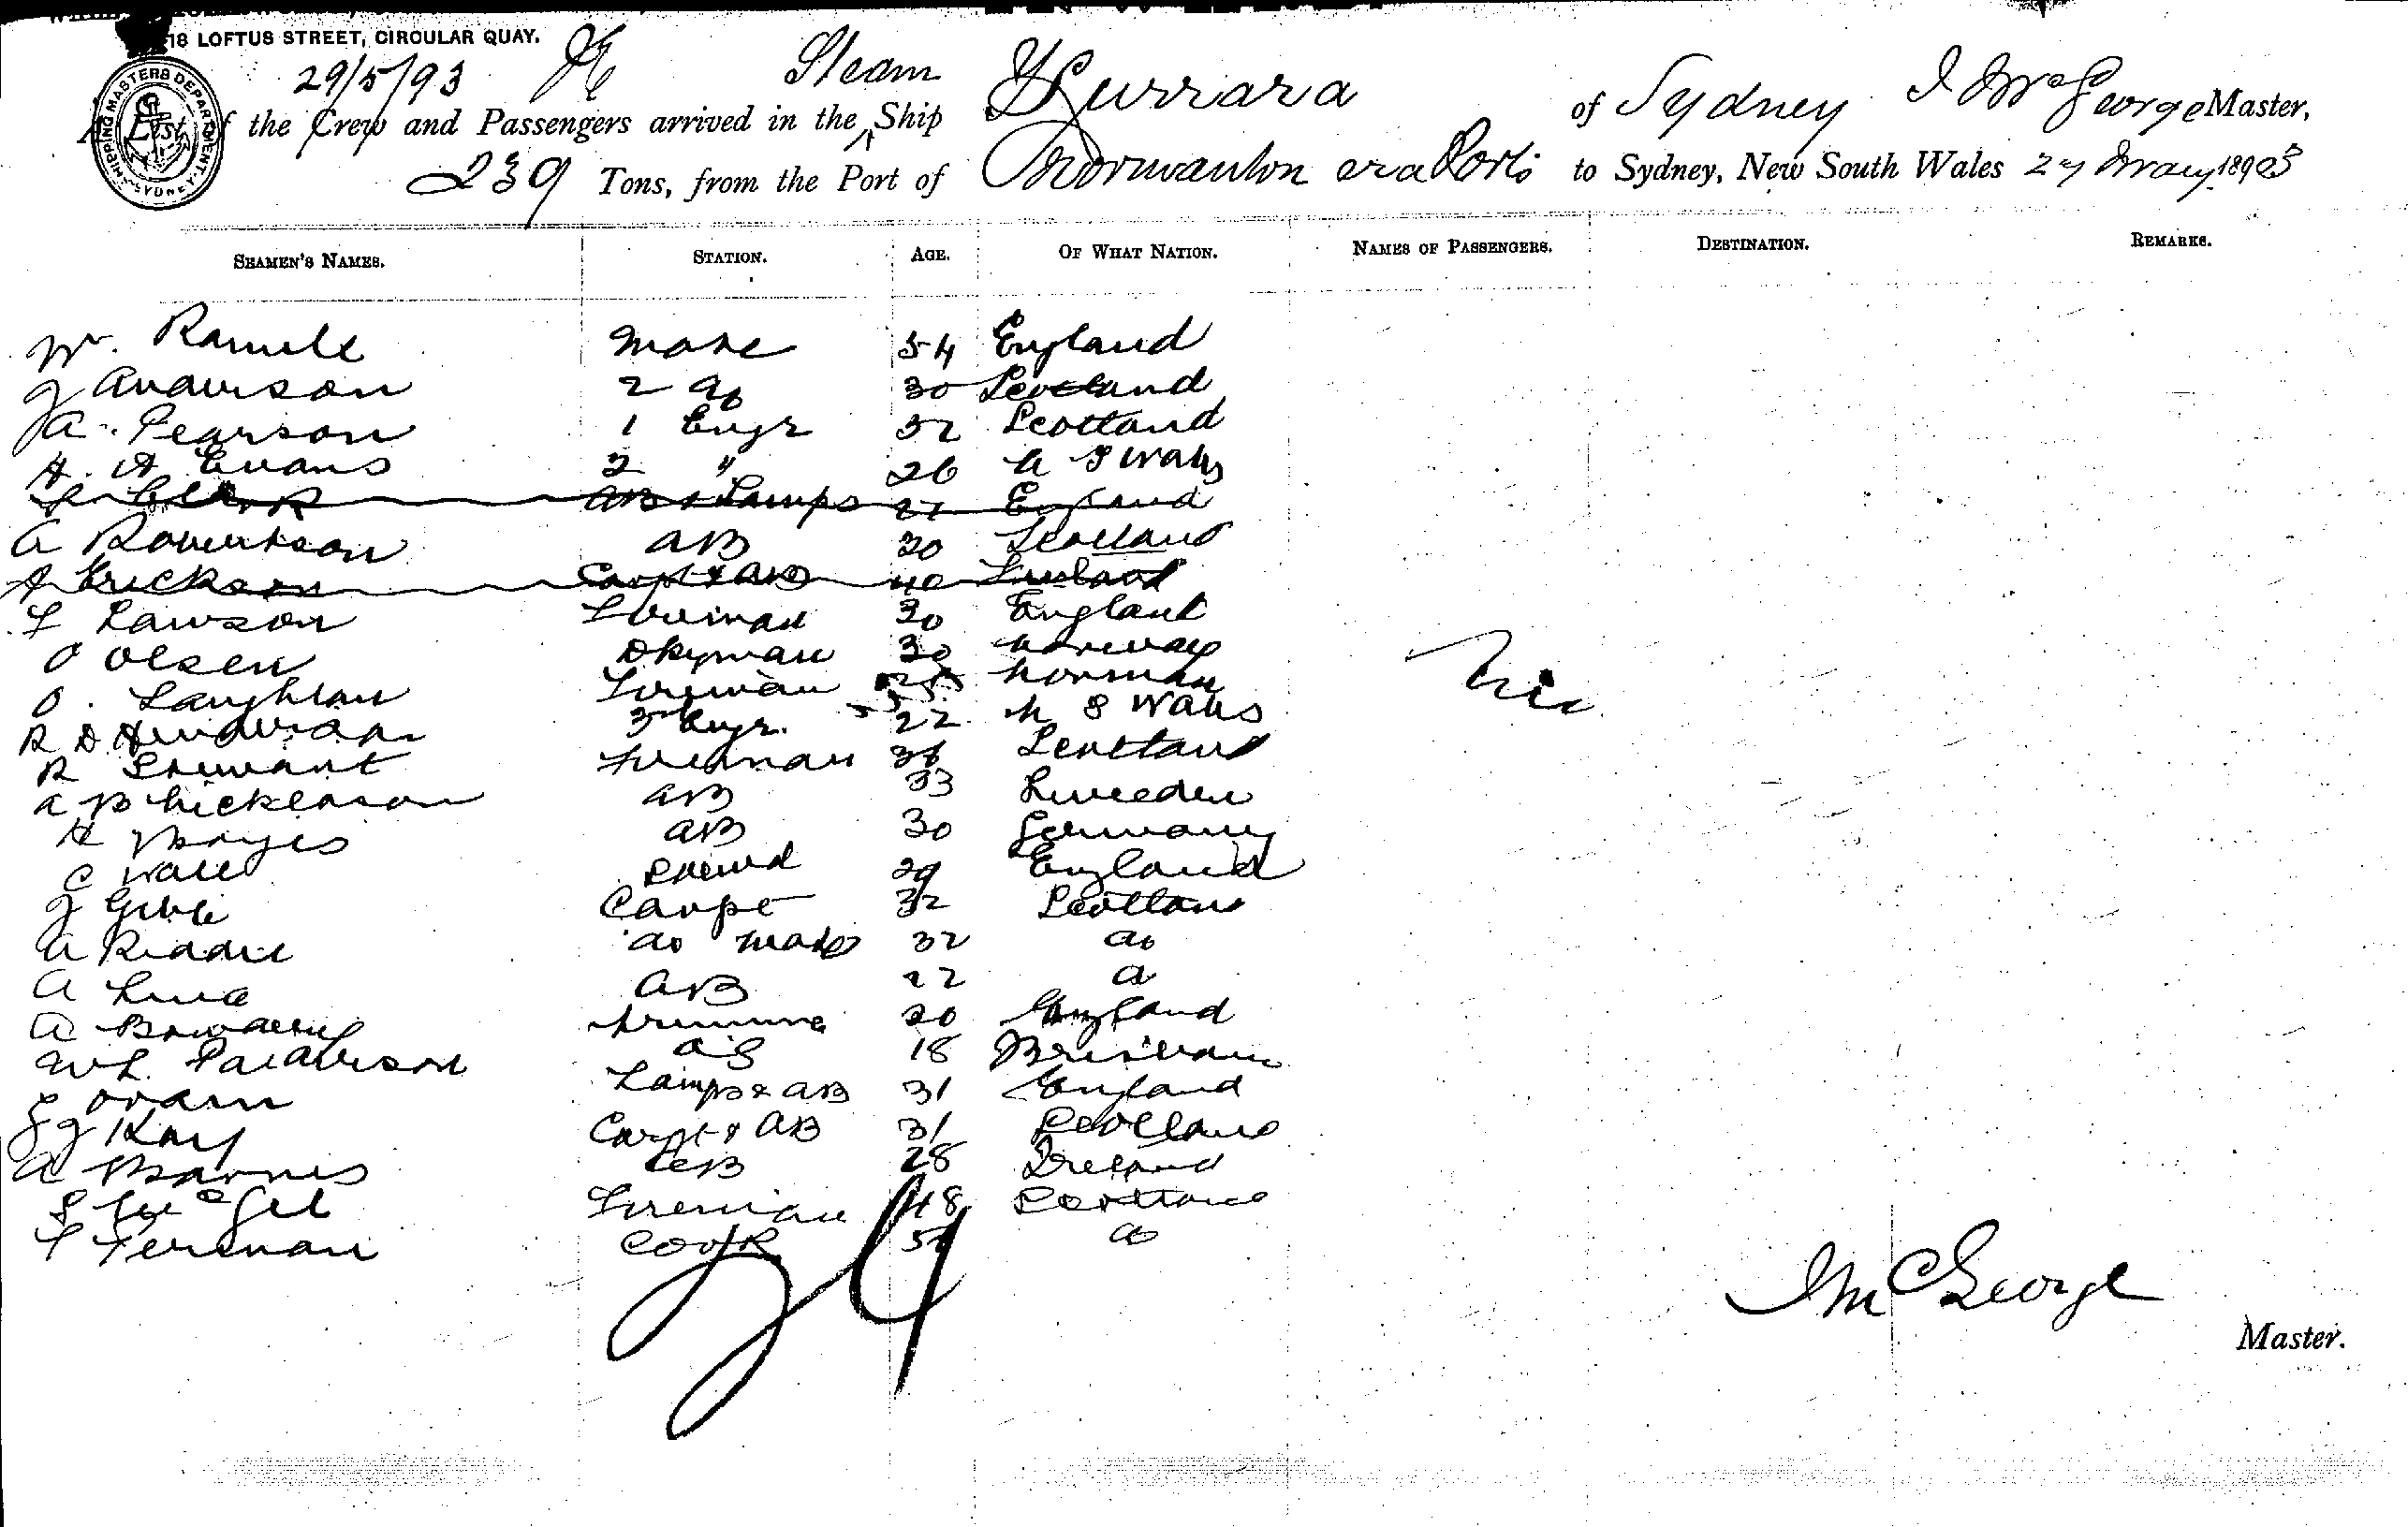 18 LOFTUS STREET, CIRCULAR QUAY.
SHIPPING MASTERS DEPARTMENT. SYDNEY.
29/5/93
A List of the Crew and Passengers arrived in the Steam Ship Yurrara of Sydney J McGeorge Master,
239 Tons, from the Port of Normanton via Ports to Sydney, New South Wales 27 May 1893
SEAMEN'S NAMES. STATION. AGE. OF WHAT NATION. NAMES OF PASSENGERS. DESTINATION. REMARKS.
W. Ramell Mate 54 England
J Anderson 2 do 30 Scotland
A. Pearson 1 Engr 52 Scotland
H. A Evans 2 " 26 N S Wales
Clark AB & Lamps 27 England
A Robertson AB 30 Scotland
Erickson Carpt & AB 40
F Lawson Fireman 30 England
O Olsen Dkyman 30 Norway
O. Laughlan Fireman 25
R D Henderson 3 Engr. 22 N S Wales
R Stewart Fireman 36 Scotland
A B Nickleason AB 33 Sweeden
H Moyes AB 30 Germany
C Wall Steward 29 England
J Gible Carpt 32 Scotland
A Riddle do Mate 32 do
A AB 22 do
A Trimmer 20 England
W L. Paterson OS 18 Brisbane
Oram Lamps & AB 31 England
J J Kay Carpt & AB 31 Scotland
A Barnes AB 28 Ireland
Fireman 48 Scotland
F Ferinan Cook 50 do
Nil
24
J McGeorge
Master.